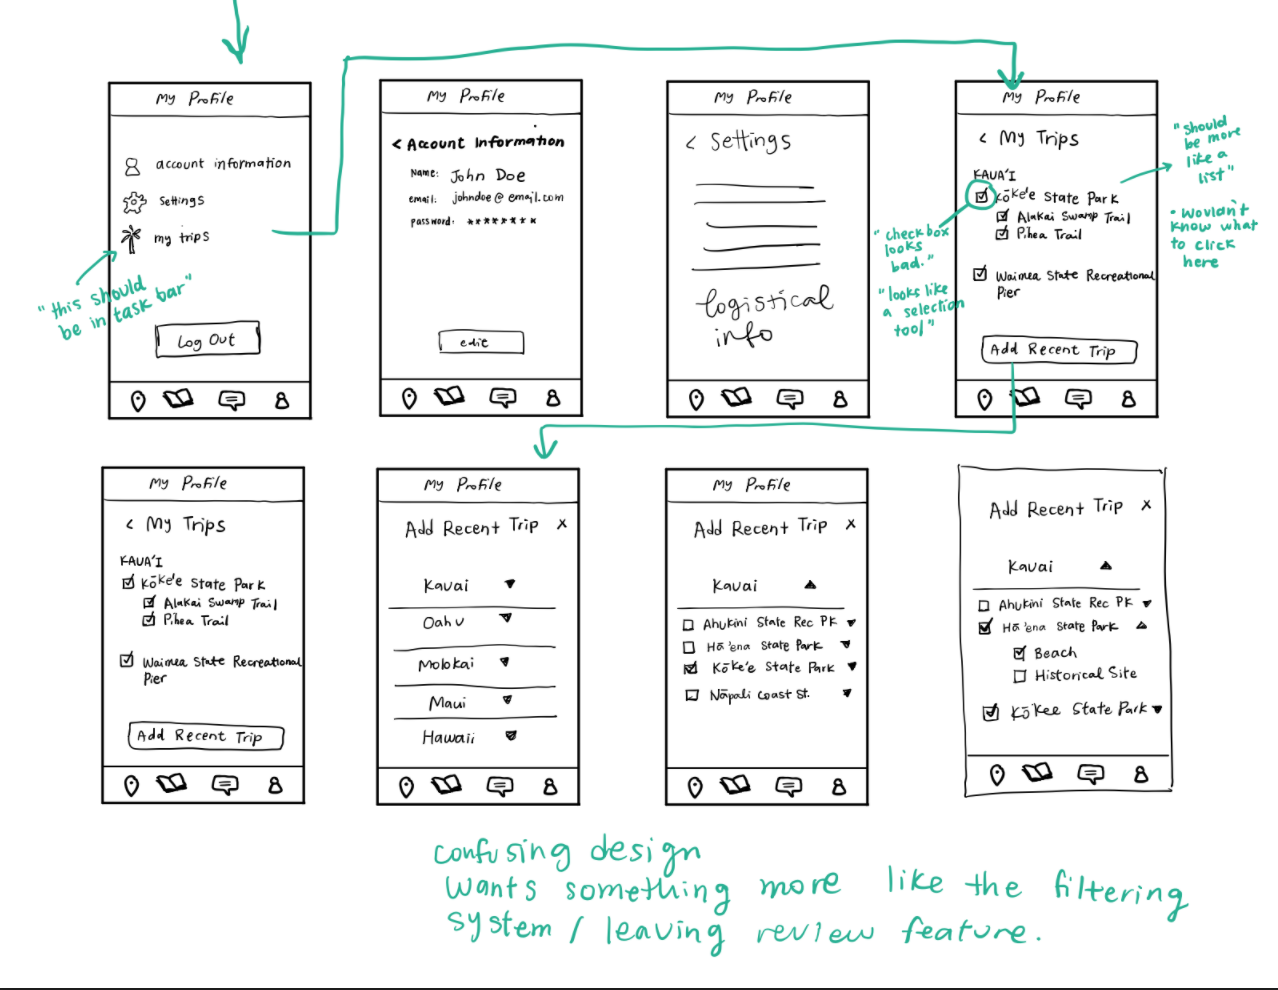 My Profile
account information
Settings
my trips
"this should
be in task bar"
Log Out
My Profile
< Account Information
Name: John Doe
email: johndoe@email.com
password: ********
edit
My Profile
< Settings
logistical
info
My Profile
< My Trips
KAUA'I
Kōke'e State Park
Alakai Swamp Trail
Pihea Trail
Waimea State Recreational
Pier
Add Recent Trip
"checkbox
looks
bad."
"looks like
a selection
tool"
"should
be more
like a
list"
• Wouldn't
know what
to click
here
My Profile
< My Trips
KAUA'I
Kōke'e State Park
Alakai Swamp Trail
Pihea Trail
Waimea State Recreational
Pier
Add Recent Trip
My Profile
Add Recent Trip X
Kauai
Oahu
Molokai
Maui
Hawaii
My Profile
Add Recent Trip X
Kauai
Ahukini State Rec PK
Hā'ena State Park
Kōke'e State Park
Nāpali Coast St.
Add Recent Trip X
Kauai
Ahukini State Rec PK
Hā'ena State Park
Beach
Historical Site
Kōkee State Park
confusing design
wants something more like the filtering
system / leaving review feature.